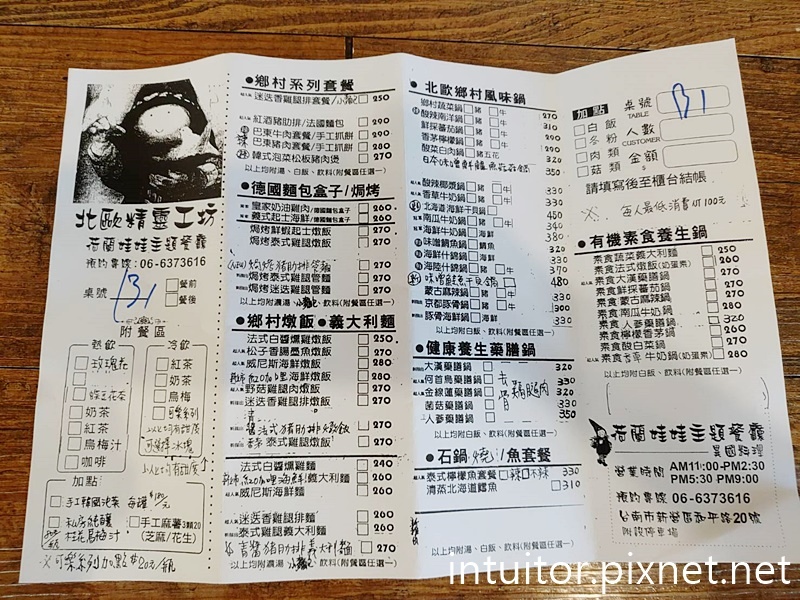 北歐精靈工坊
荷蘭娃娃主題餐廳
預約專線:06-6373616
桌號 B1 □餐前
□餐後
附餐區
熱飲
□玫瑰花
□蝶豆花茶
□奶茶
□紅茶
□烏梅汁
□咖啡
冷飲
□紅茶
□奶茶
□烏梅
□可樂系列
加點:
□手工韓國泡菜
□手工麻薯3顆20
(芝麻/花生)
●鄉村系列套餐
迷迭香雞腿排套餐 □ 250
紅酒豬肋排/法國麵包 □ 290
巴東牛肉套餐/手工抓餅 □ 290
巴東豬肉套餐/手工抓餅 □ 280
韓式泡菜松板豬肉煲 □ 270
以上均附湯、白飯、飲料(附餐區任選一)
●德國麵包盒子/焗烤
皇家奶油雞肉/德國麵包盒子 □ 260
義式起士海鮮/德國麵包盒子 □ 260
焗烤鮮蝦起士燉飯 □ 270
焗烤泰式雞腿燉飯 □ 270
焗烤豬肋排管麵 □ 270
焗烤泰式雞腿管麵 □ 280
焗烤迷迭雞腿管麵 □ 270
●鄉村燉飯●義大利麵
法式白醬燻雞燉飯 □ 250
松子香腸墨魚燉飯 □ 250
威尼斯海鮮燉飯 □ 280
紅咖哩海鮮燉飯 □ 280
野菇雞腿肉燉飯 □ 260
迷迭香雞腿排燉飯 □ 260
醬法式豬肋排燉飯 □ 270
泰式雞腿燉飯 □ 270
法式白醬燻雞麵 □ 240
紅咖哩海鮮義大利麵 □ 260
威尼斯海鮮麵 □ 260
迷迭香雞腿排麵 □ 260
泰式雞腿義大利麵 □ 260
青醬豬肋排義大利麵 □ 270
●北歐鄉村風味鍋
鄉村蔬菜鍋□豬 □牛 270
酸辣南洋鍋□豬 □牛 310
鮮採番茄鍋□豬 □牛 290
香茅檸檬鍋□豬 □牛 320
酸菜白肉鍋□豬五花 320
350
酸辣椰漿鍋□豬 □牛 330
香草牛奶鍋□豬 □牛 330
北海道海鮮干貝鍋□ 450
南瓜牛奶鍋□豬 □牛 310
韓式海鮮鍋□海鮮 380
味噌鯛魚鍋□鯛魚 320
海鮮什錦鍋□海鮮 350
海陸什錦鍋□豬 □牛 370
480
蒙古麻辣鍋□豬 □牛 330
京都豚骨鍋□豬 □牛 300
豚骨海鮮鍋□海鮮 330
以上均附白飯、飲料(附餐區任選一)
●健康養生藥膳鍋
大漢藥膳鍋□ 330
何首烏藥膳鍋□ 320
金線蓮藥膳鍋□ 330
菌菇藥膳鍋□ 330
人參藥膳鍋□ 350
以上均附白飯、飲料(附餐區任選一)
●石鍋/燒/魚套餐
泰式檸檬魚套餐□辣□不辣 330
清蒸北海道鱈魚 □ 310
以上均附湯、白飯、飲料(附餐區任選一)
加點
□白飯
□冬粉
□肉類
□菇類
桌號 TABLE B1
人數 CUSTOMER
金額 $
請填寫後至櫃台結帳
※ 每人最低消費100元
●有機素食養生鍋
素食蔬菜義大利麵 □ 250
素食法式燉飯(奶蛋素) □ 260
素食鮮採番茄鍋 □ 270
素食蒙古麻辣鍋 □ 280
素食南瓜牛奶鍋 □ 270
素食人參藥膳鍋 □ 320
素食檸檬香茅鍋 □ 290
素食酸白菜鍋 □ 260
素食香草牛奶鍋(奶蛋素) □ 280
以上均附白飯、飲料(附餐區任選一)
荷蘭娃娃主題餐廳
異國料理
營業時間 AM11:00-PM2:30
PM5:30 PM9:00
預約專線:06-6373616
台南市新營區和平路20號
附設停車場
intuitor.pixnet.net